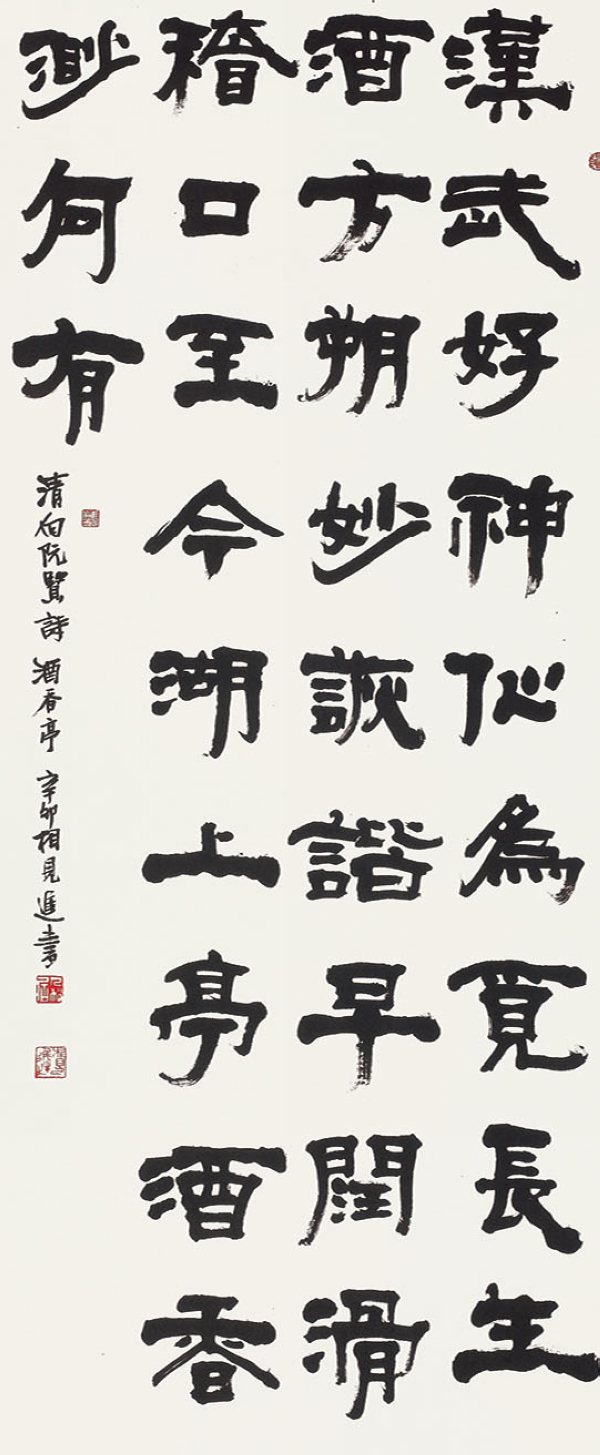 漢武好神仙為覓長生
酒方朔妙詼諧早閏滑
稽口至今湖上亭酒香
渺何有
清向阮賢詩 酒香亭 辛卯相見進書